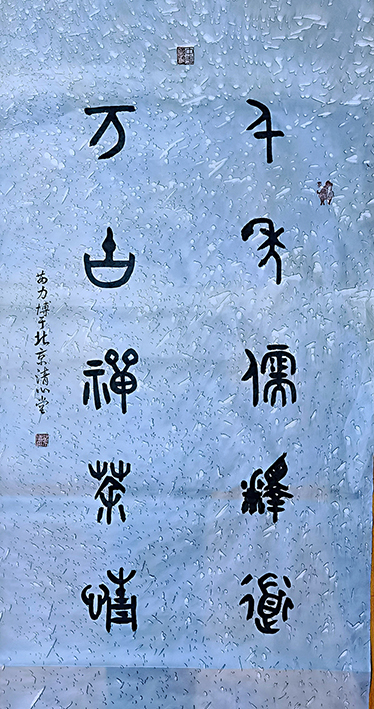 千年儒释道
万古禅茶情
苗力博于北京清心堂